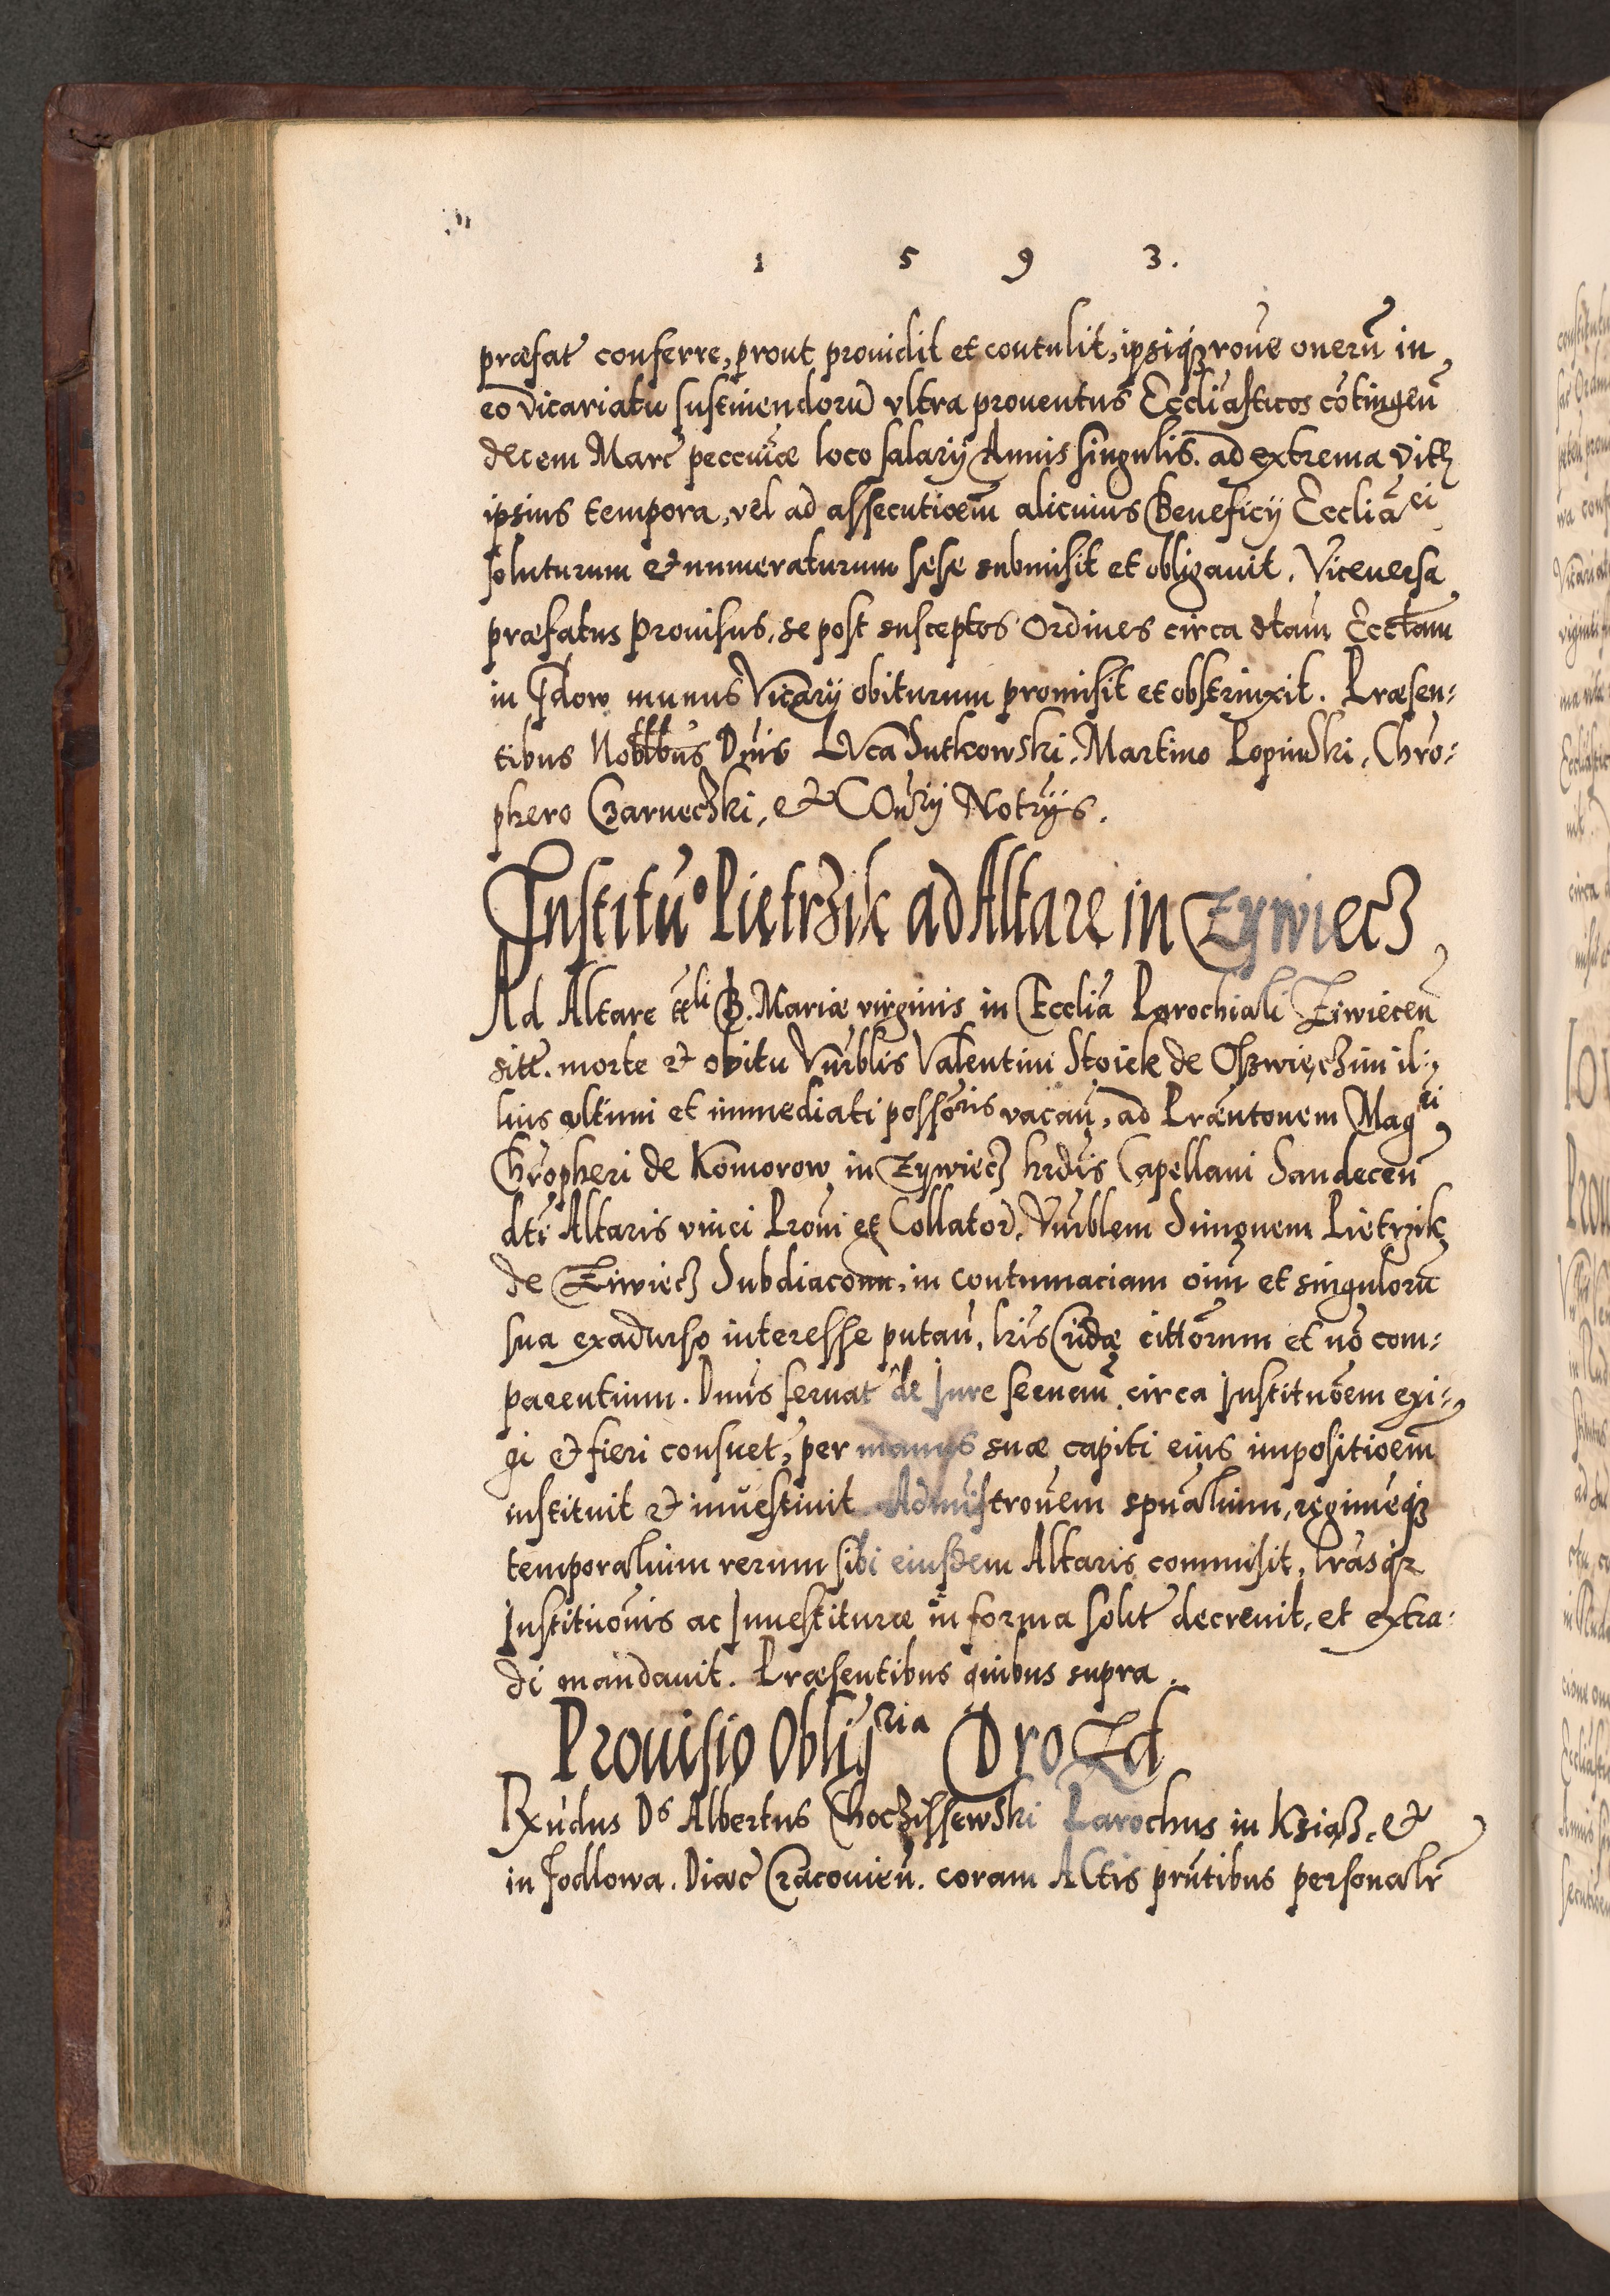 1 5 9 3.
præfat conferre, prout prouidit et contulit, ipsiq́ꝫ rōne onerū in
eo vicariatu sustinendorū vltra prouentus Eccliāsticos cōtingeñ
decem Marc peccuiæ loco salarij Annis singulis. ad extrema vitę
ipsius tempora, vel ad assecutioēm alicuius Beneficij Eccliāci
soluturum et numeraturum sese submisit et obligauit. Viceuersa
præfatus prouisus, se post susceptos Ordines circa dtam Ecctam
in Gdow munus Vicarij obiturum promisit et obstrinxit. Præsen:
tibus Nobllbus Dnis LVca Sutkowski, Martino Lopinski, Chro:
phero Czarneczki, et COūrij Notrijs.
Institúo Pietrzik ad Altare in Zywiecz
Ad Altare ttli B. Mariæ virginis in Ecclia Parochiali Ziwieceñ
sitt. morte et obitu Vnrblis Valentini Stoiek de Oszwięczim il:
lius vltimi et immediati possoris vacañ, ad Præntonem Magci
Chrōpheri de Komorow in Zywiecz hrdis Capellani Sandeceñ
dti Altaris vnici Proui et Collator. Vnrblem Simonem Pietrzik
de Ziwiecz Subdiaconn, in contumaciam oīm et singulorū
sua exadurso interesse putañ, lris Cridæ cittorum et nō com:
parentium. Dnus seruat de Jure seruand circa Institutoēm exi:
gi et fieri consuet, per manus suæ capiti eius impositioēm
instituit et inuestiuit Admistrouem spualium, regimēq́ꝫ
temporalium rerum sibi eiusdem Altaris commisit, lrasq́ꝫ
Institūonis ac Inuestituræ in forma solit decreuit, et extra:
di mandauit. Præsentibus quibus supra.
Prouisio Obligria Drozd
Rxūdus Ds Albertus Choczissewski Parochus in Książ, et
in Jodlowa. Diæc Cracouieñ. coram Actis prñtibus personalr